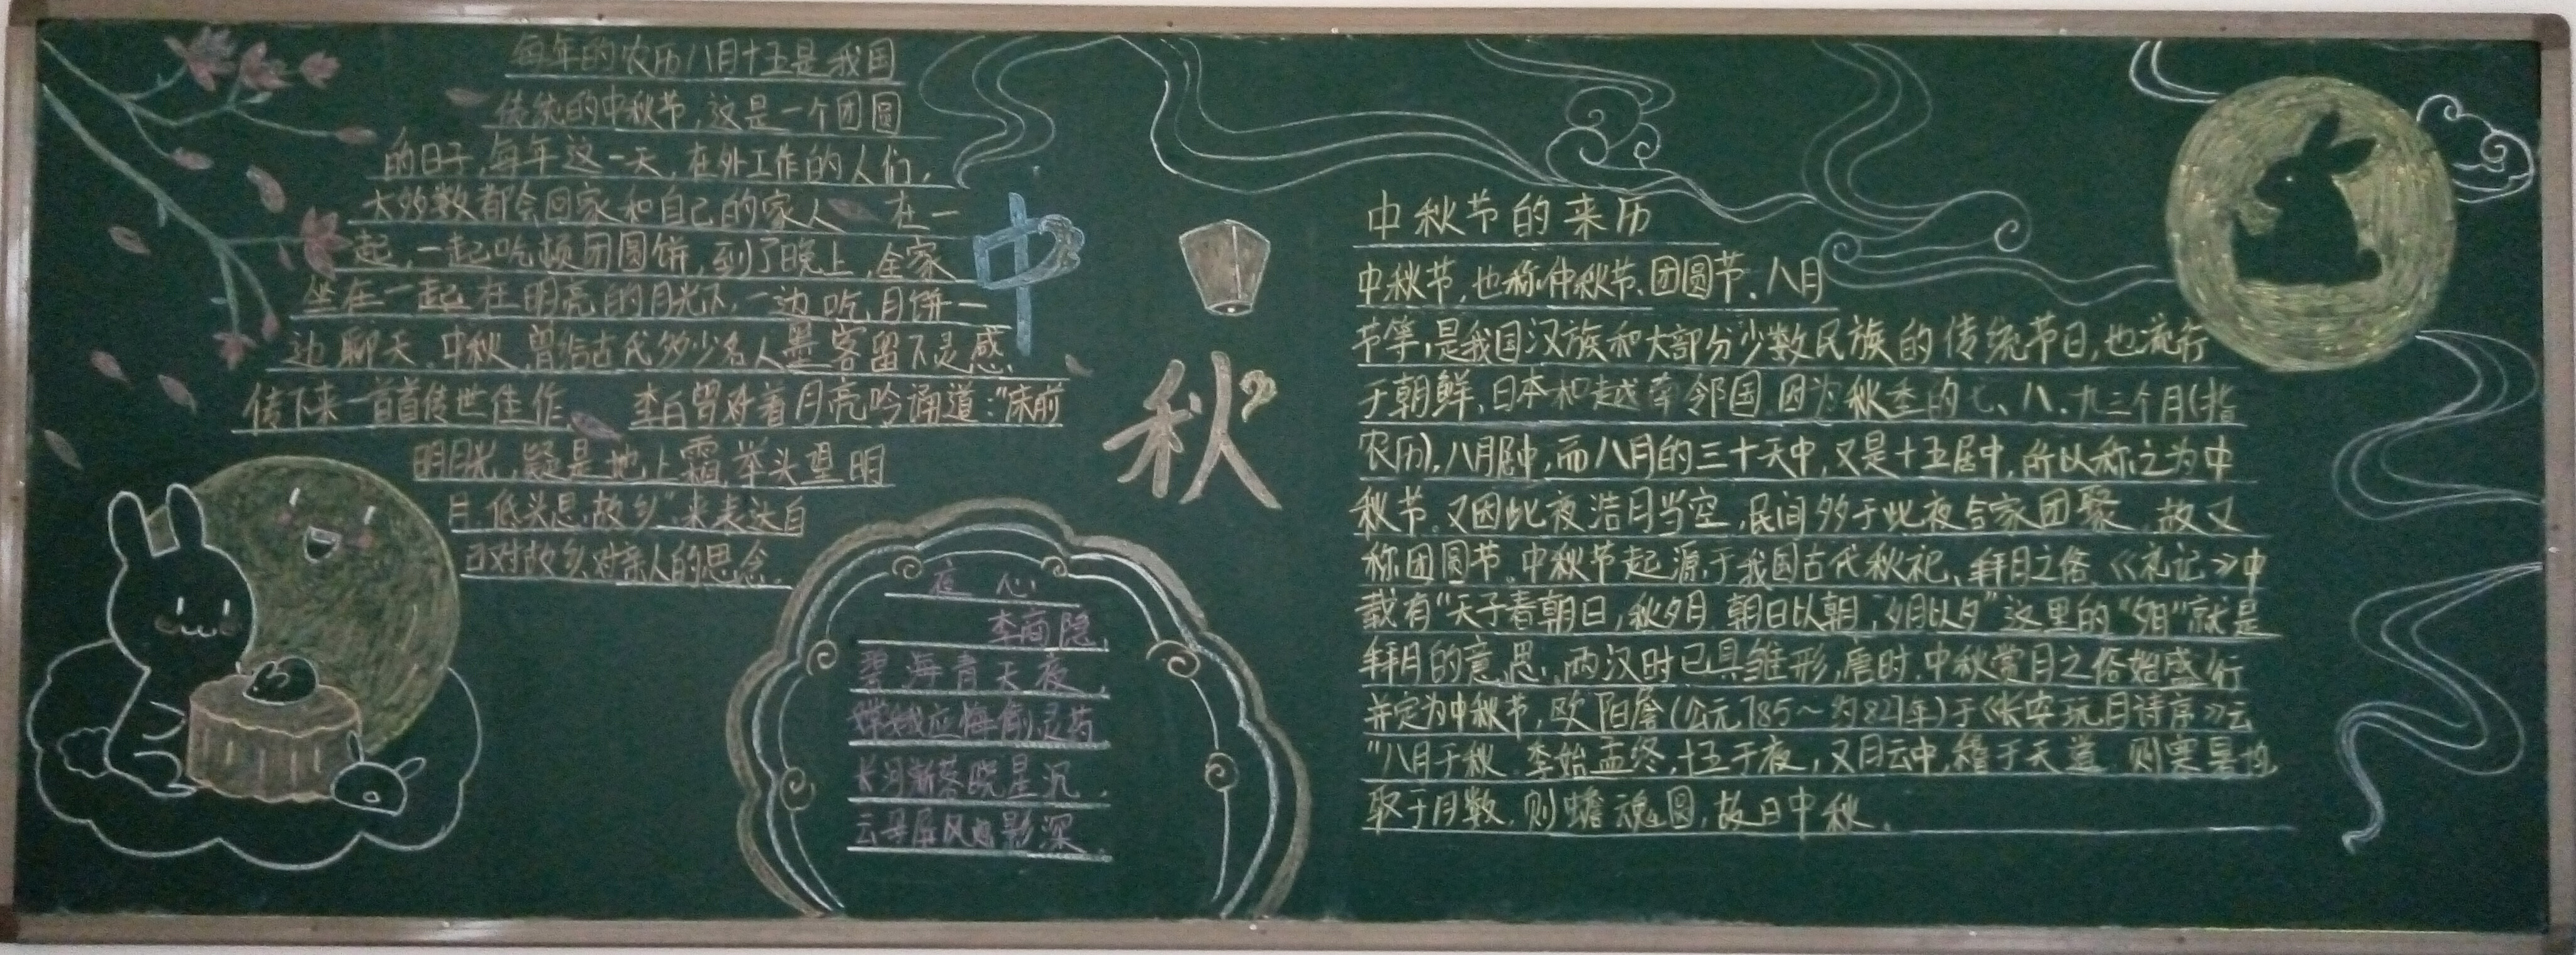 每年的农历八月十五是我国
传统的中秋节,这是一个团圆
的日子,每年这一天,在外工作的人们,
大多数都会回家和自己的家人 在一
起,一起吃顿团圆饼,到了晚上,全家
坐在一起在明亮的月光下,一边吃月饼一
边聊天。中秋,曾给古代多少名人墨客留下灵感,
传下来一首首传世佳作 李白曾对着月亮吟诵道:“床前
明月光,疑是地上霜,举头望明
月,低头思故乡”来表达自
己对故乡,对亲人的思念。
中
秋
夜心
李商隐
碧海青天夜,
嫦娥应悔偷灵药
长河渐落晓星沉,
云母屏风烛影深。
中秋节的来历
中秋节,也称仲秋节、团圆节、八月
节等,是我国汉族和大部分少数民族的传统节日,也流行
于朝鲜、日本和越南邻国,因为秋季的七、八、九三个月(指
农历),八月居中,而八月的三十天中,又是十五居中,所以称之为中
秋节。又因此夜浩月当空,民间多于此夜合家团聚,故又
称团圆节。中秋节起源于我国古代秋祀、拜月之俗,《礼记》中
载有“天子春朝日,秋夕月。朝日以朝,夕月以夕”这里的“夕月”就是
拜月的意思,两汉时已具雏形,唐时,中秋赏月之俗始盛行
并定为中秋节,欧阳詹(公元785~约827年)于《长安玩月诗序》云
“八月于秋,季始孟终,十五于夜,又月云中,稽于天道,则寒暑均,
取于月数,则蟾魂圆,故曰中秋。